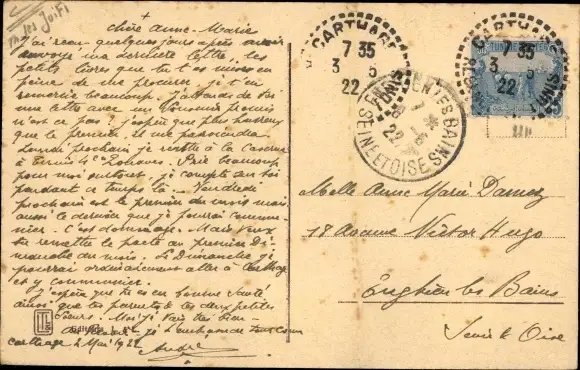 +
chère Anne-Marie
J'ai reçu quelques jours après avoir
envoyé ma dernière lettre les
petits livres que tu t'es mises en
peine de me procurer, je t'en
remercie beaucoup. J'attends de toi
une lettre avec un
n'est ce pas? J'espère que plus heureux
que le premier, il me parviendra
Lundi prochain je rentre à la caserne
à Tunis 4e Zouaves. Prie beaucoup
pour moi surtout, je compte sur toi
pendant ce temps là. Vendredi
prochain est le premier du mois mais
aussi le dernier que je pourrai commu-
nier. C'est dommage. Mais veux
tu remettre le pacte au premier Di-
manche du mois. Le Dimanche je
pourrai ordinairement aller à Carthage
et y communier.
J'espère que tu es en bonne santé
ainsi que tes parents et tes deux petites
sœurs. Moi je vais très bien
Au revoir, je t'embrasse de tout cœur
Carthage 2 Mai 1922
André
CARTHAGE
7 35
3 5
22
TUNIS
CARTHAGE
7 35
3 5
22
TUNIS
ENGHIEN LES BAINS
SEINE ET OISE
22
Melle Anne Marie Darnez
18 Avenue Victor Hugo
Enghien les Bains
Seine & Oise